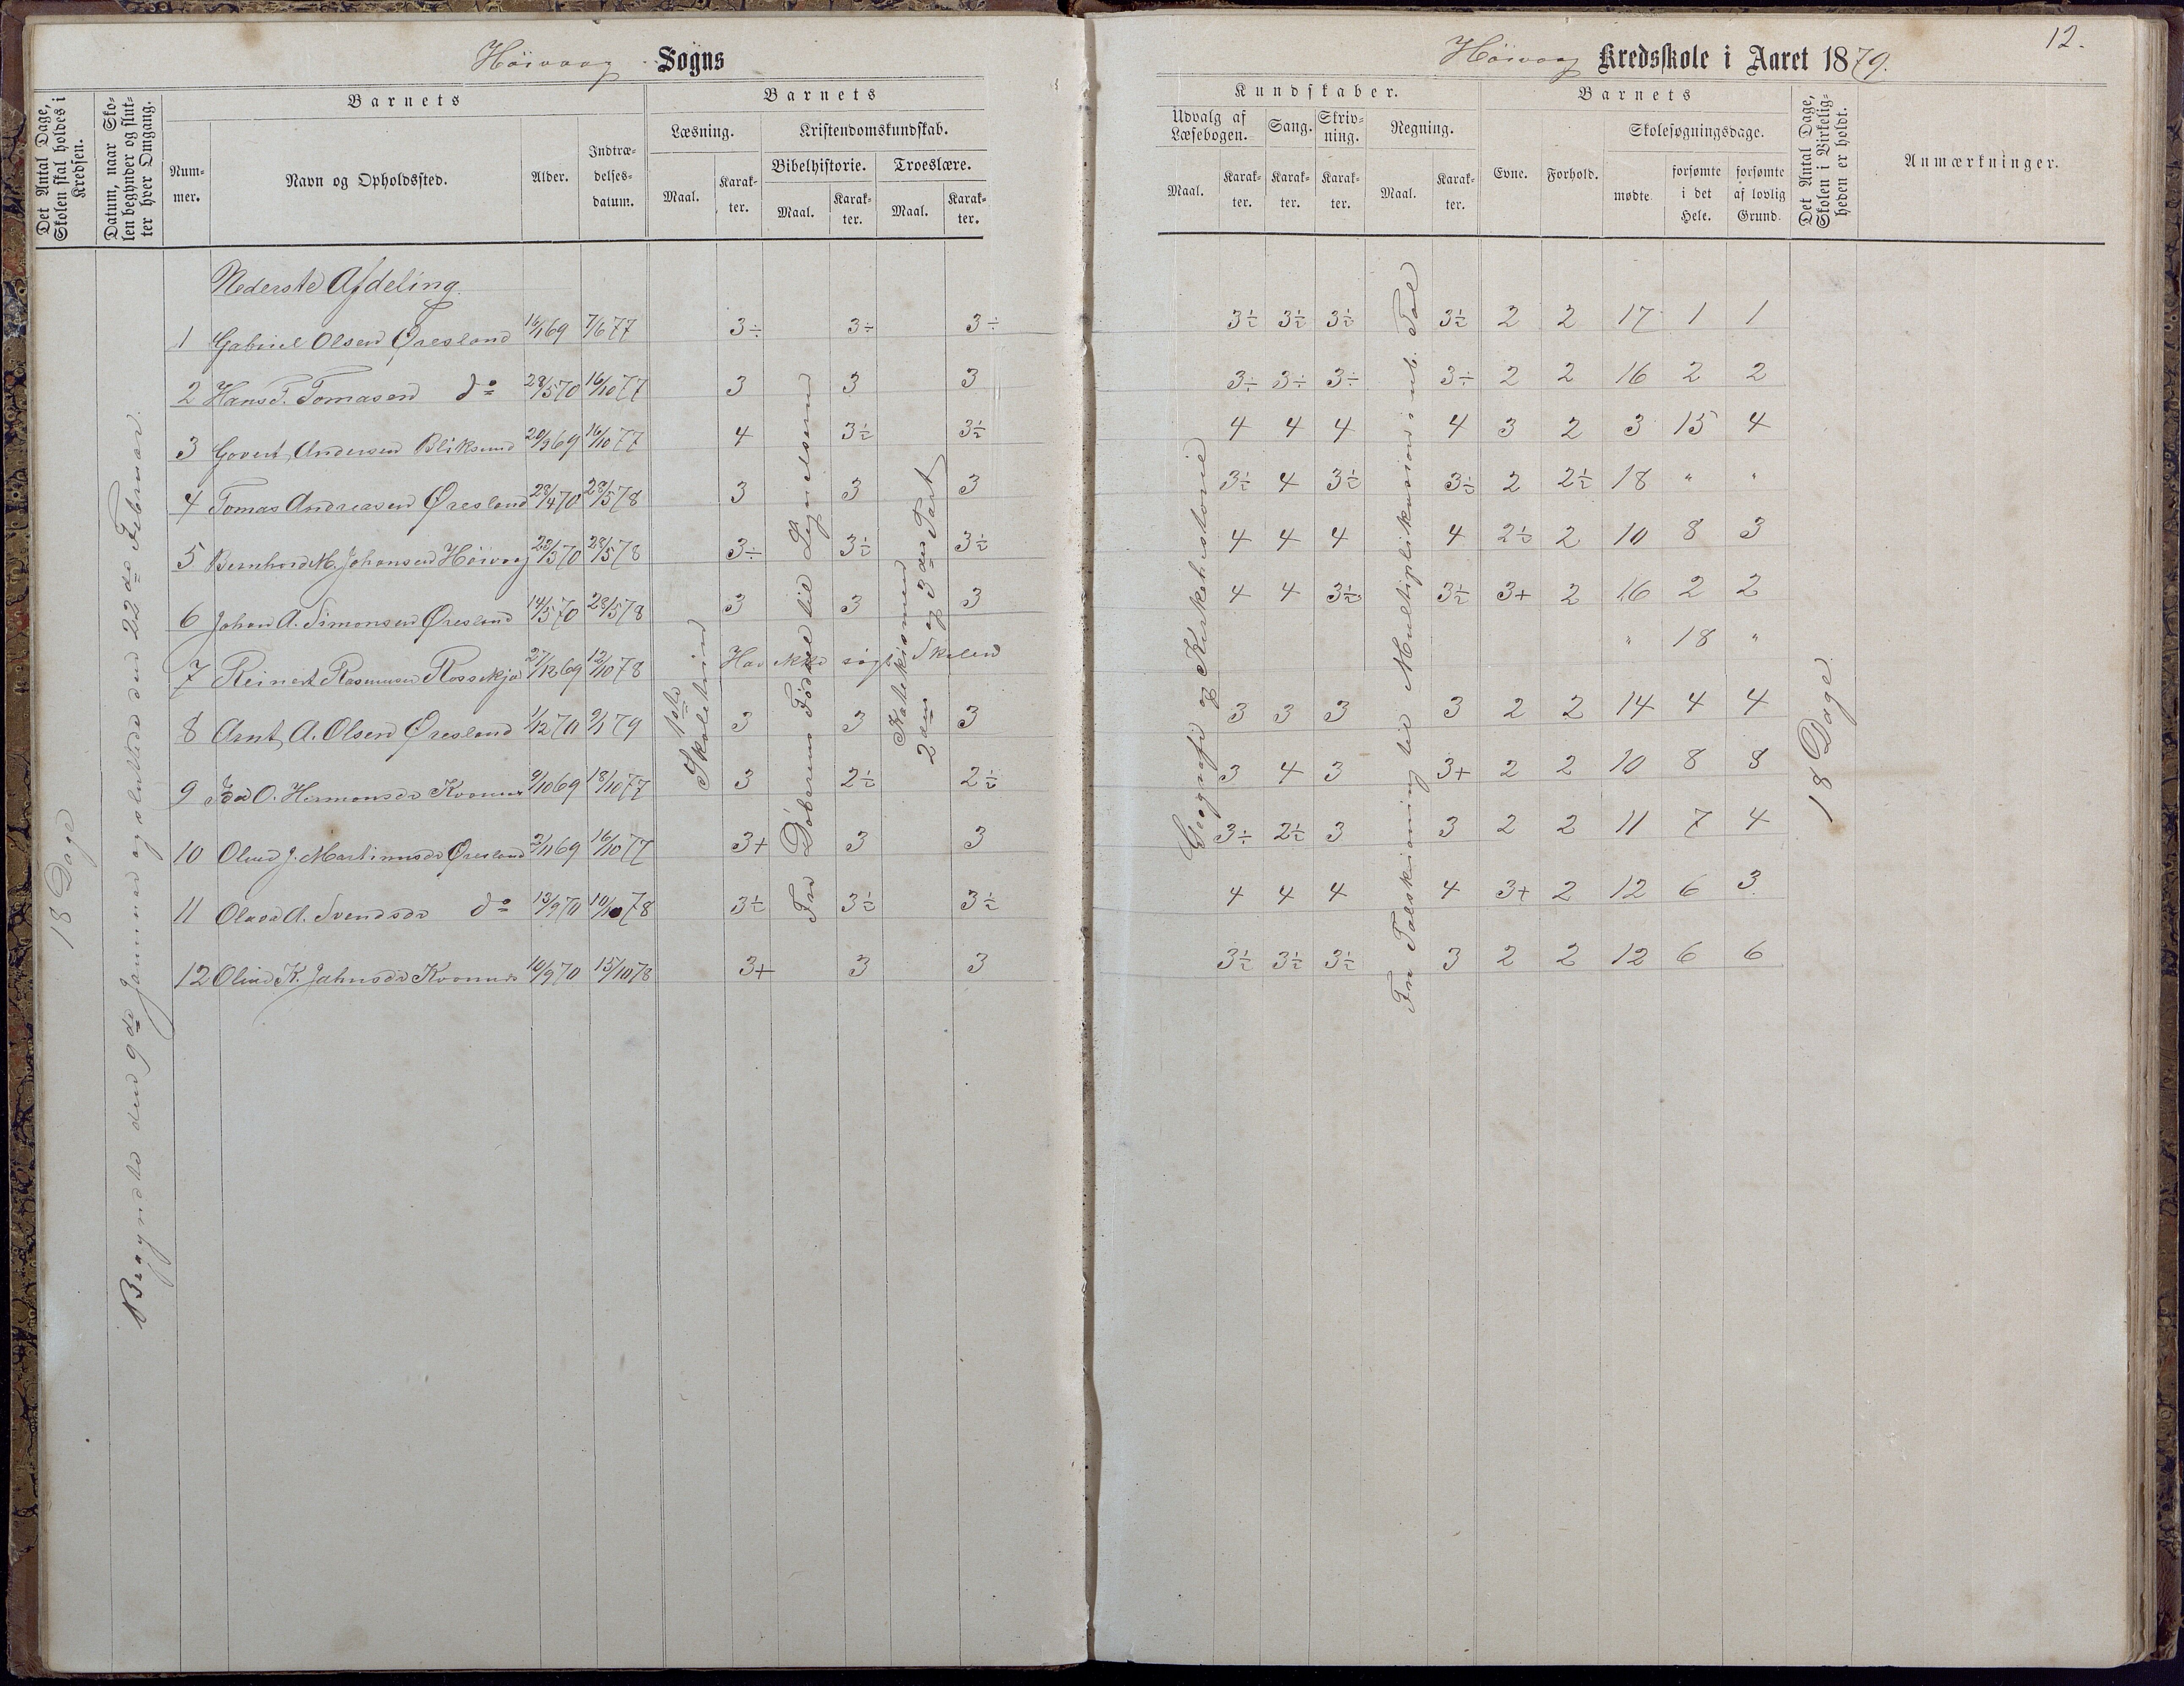 Höivaag Sogns
Det Antal Dage, Skolen skal holdes i Kredsen.
Datum, naar Skolen begynder og slutter hver Omgang.
Barnets
Nummer.
Navn og Opholdssted.
Alder.
Indtrædelsesdatum.
Barnets
Læsning.
Maal.
Karakter.
Kristendomskundskab.
Bibelhistorie.
Maal.
Karakter.
Troeslære.
Maal.
Karakter.
18 Dage
Begyndte den 9de Januar og sluttede den 22de Februar.
Nederste Afdeling.
1 Gabriel Olsen Øresland 16/1 69 7/6 77 3÷ 3÷ 3÷
2 Hans T. Tomasen do 28/5 70 16/10 77 3 3 3
3 Govert Andersen Bliksund 20/9 69 16/10 77 4 3½ 3½
4 Tomas Andreasen Øresland 28/4 70 28/5 78 3 3 3
5 Bernhard M. Johansen Höivaag 22/3 70 28/5 78 3÷ 3½ 3½
6 Johan A. Simonsen Øresland 14/5 70 28/5 78 3 3 3
7 Reinert Rasmusen Rossekjær 27/12 69 12/10 78 Har ikke søgt Skolen
8 Arnt A. Olsen Øresland 1/12 70 9/1 79 3 3 3
9 O. Hermansdr 9/10 69 18/10 77 3 2½ 2½
10 J. Martinusdr Øresland 2/11 69 16/10 77 3+ 3 3
11 Olava A. Svendsdr do 13/9 70 10/10 78 3½ 3½ 3½
12 K. Jahnsdr 10/9 70 15/10 78 3+ 3 3
1ste Skoletrin
Fra Døberens Fødsel til Lignelserne
Katekismen 2den og 3die Part
Höivaag Kredsskole i Aaret 1879.
12.
Kundskaber.
Udvalg af Læsebogen.
Maal.
Karakter.
Sang.
Karakter.
Skrivning.
Karakter.
Regning.
Maal.
Karakter.
Barnets
Evne.
Forhold.
Skolesøgningsdage.
mødte.
forsømte i det Hele.
forsømte af lovlig Grund.
Det Antal Dage, Skolen i Virkeligheden er holdt.
Anmærkninger.
3½ 3½ 3½ 3½ 2 2 17 1 1
3÷ 3÷ 3÷ 3÷ 2 2 16 2 2
4 4 4 4 3 2 3 15 4
3½ 4 3½ 3½ 2 2½ 18 " "
4 4 4 4 2½ 2 10 8 3
4 4 3½ 3½ 3+ 2 16 2 2
" 18 "
3 3 3 3 2 2 14 4 4
3 4 3 3+ 2 2 10 8 8
3÷ 2½ 3 3 2 2 11 7 4
4 4 4 4 3+ 2 12 6 3
3½ 3½ 3½ 3 2 2 12 6 6
Geografi og Kirkehistorie
Fra Talskrivning til Multiplikasion i ub. Tal
18 Dage